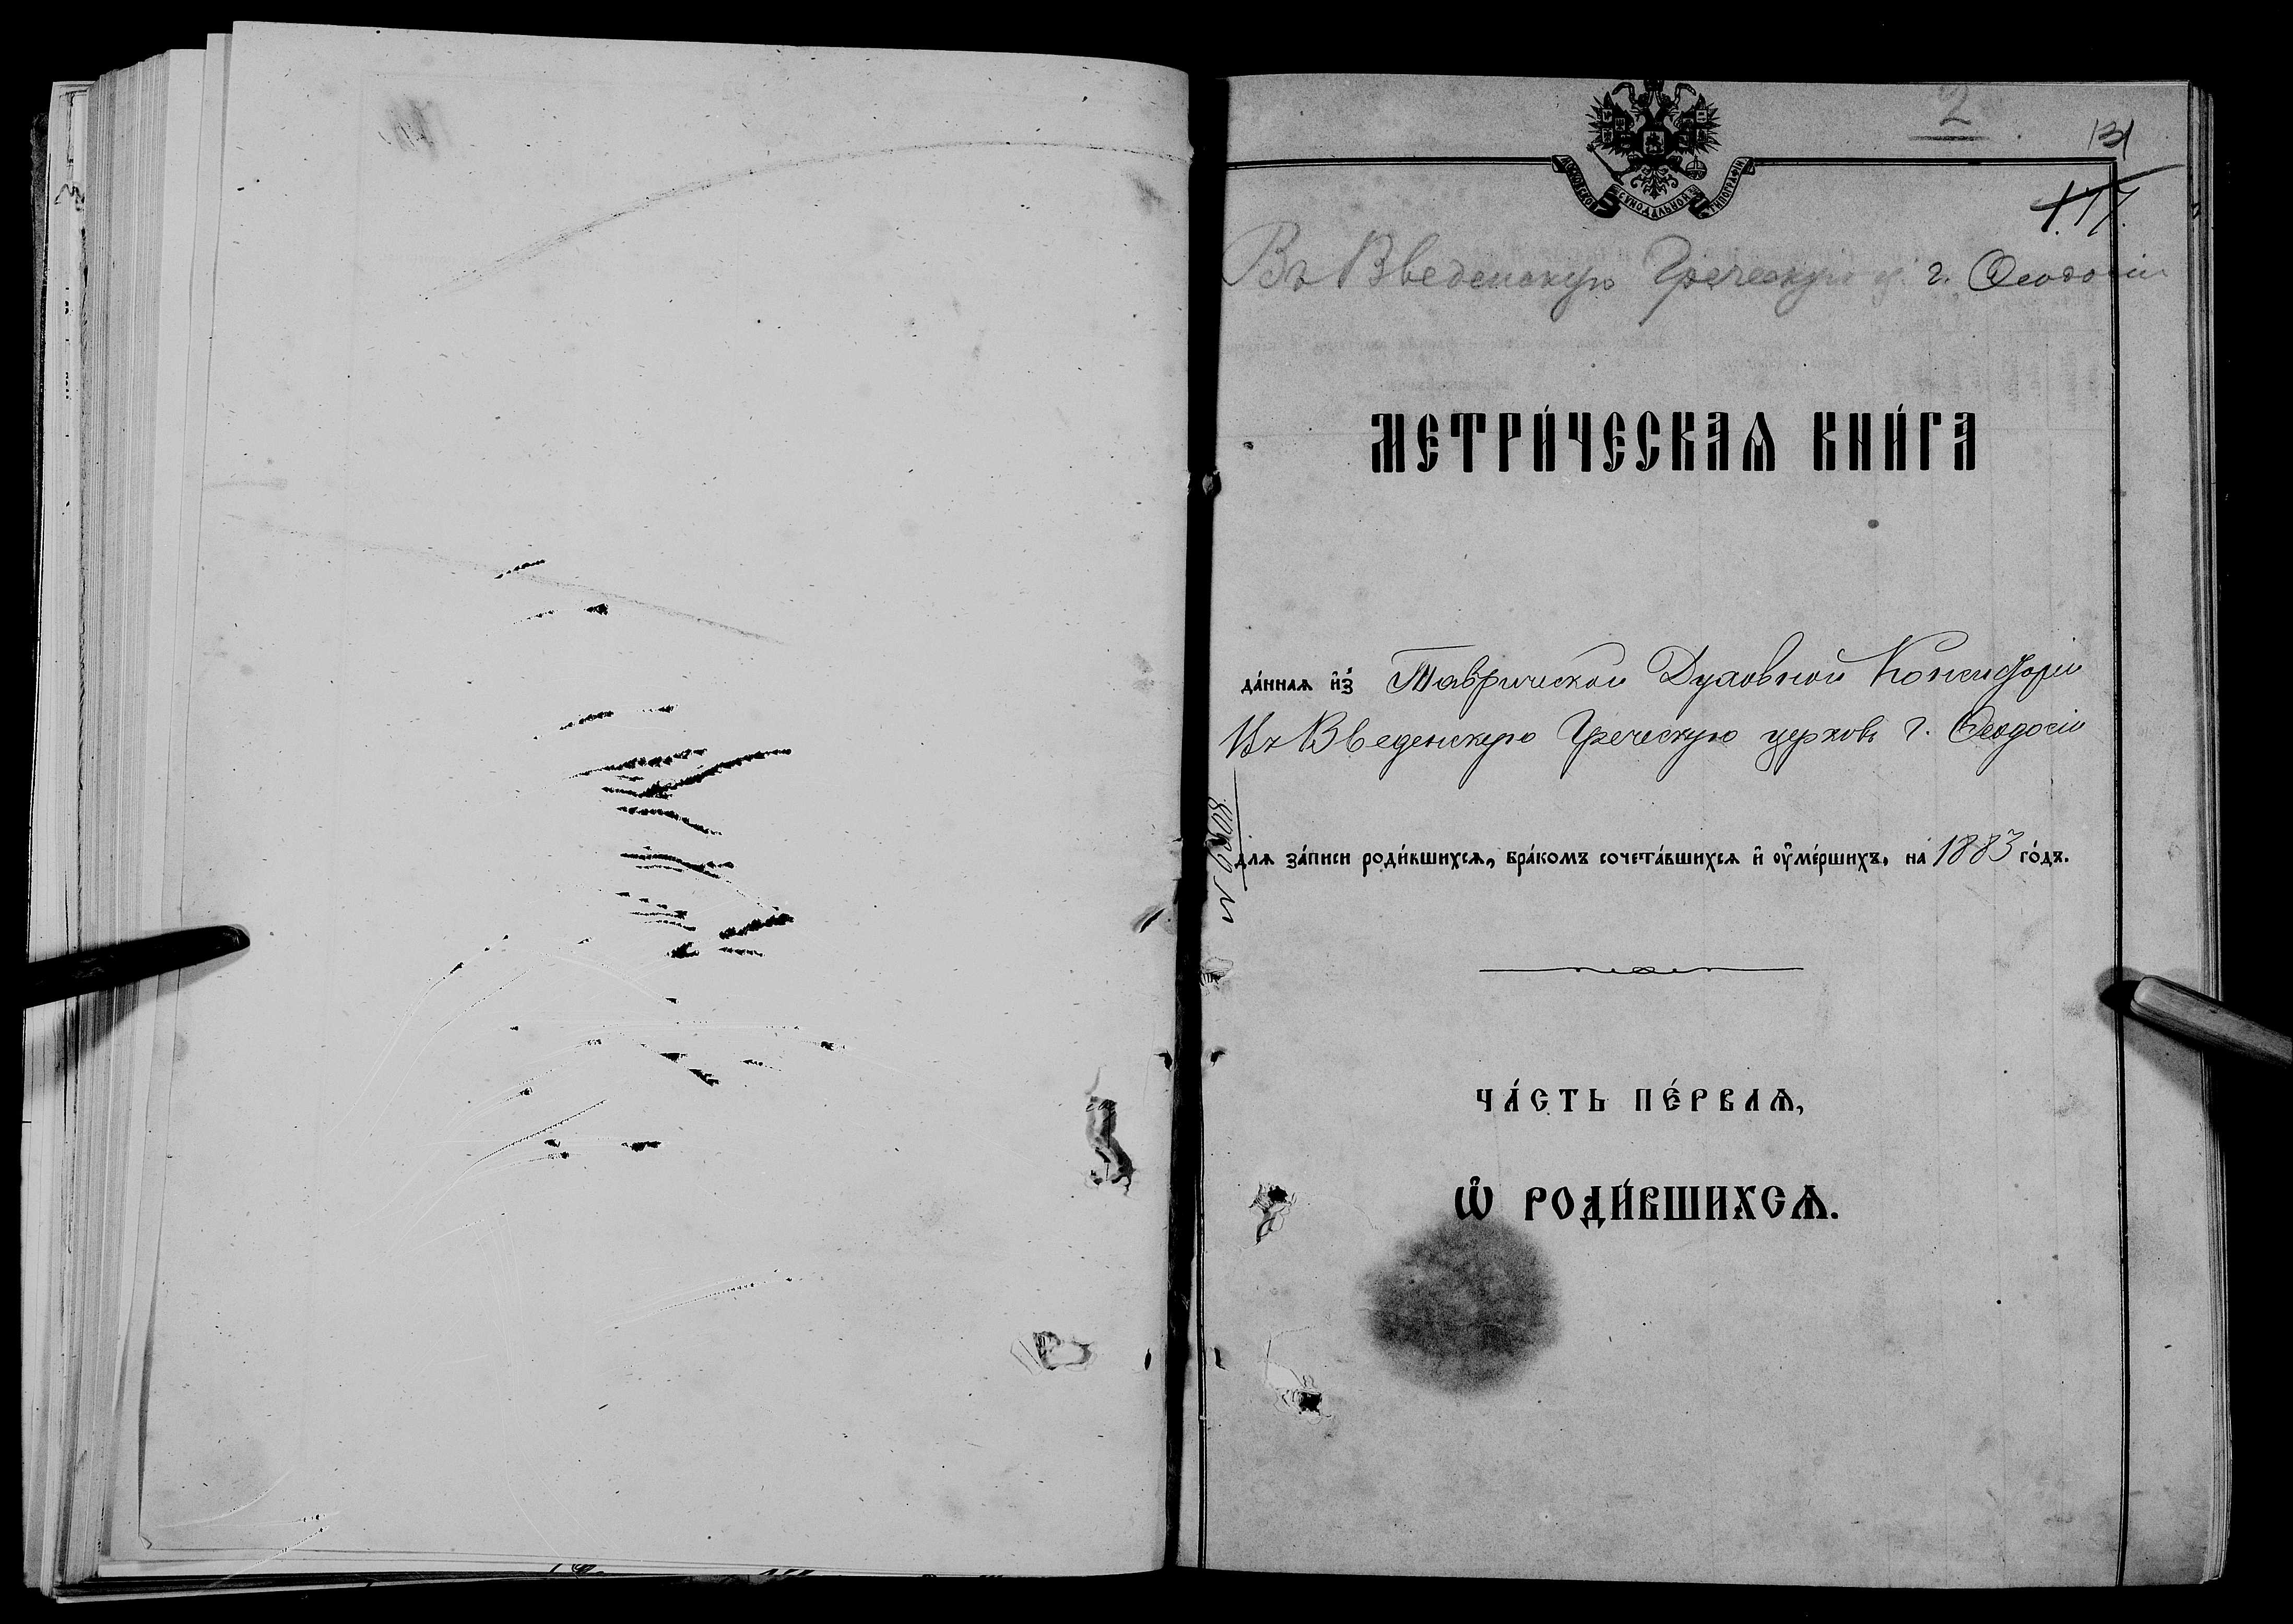 2
131
117.
МОСКОВСКОЙ СУНОДАЛЬНОЙ ТИПОГРАФІИ
Въ Введенскую Греческую ц. г. Ѳеодосіи
МЕТРИ́ЧЕСКАѦ КНИ́ГА
да́нная и҆з̾ Таврической Духовной Консисторіи
Въ Введенскую Греческую церковь г. Ѳеодосіи
для за́писи роди́вшихсѧ, бра́комъ сочета́вшихсѧ и҆ ᲂу҆ме́ршихъ, на 1883 го́дъ.
ЧА́СТЬ ПЕ́РВАѦ,
Ѽ РОДИ́ВШИХСѦ.